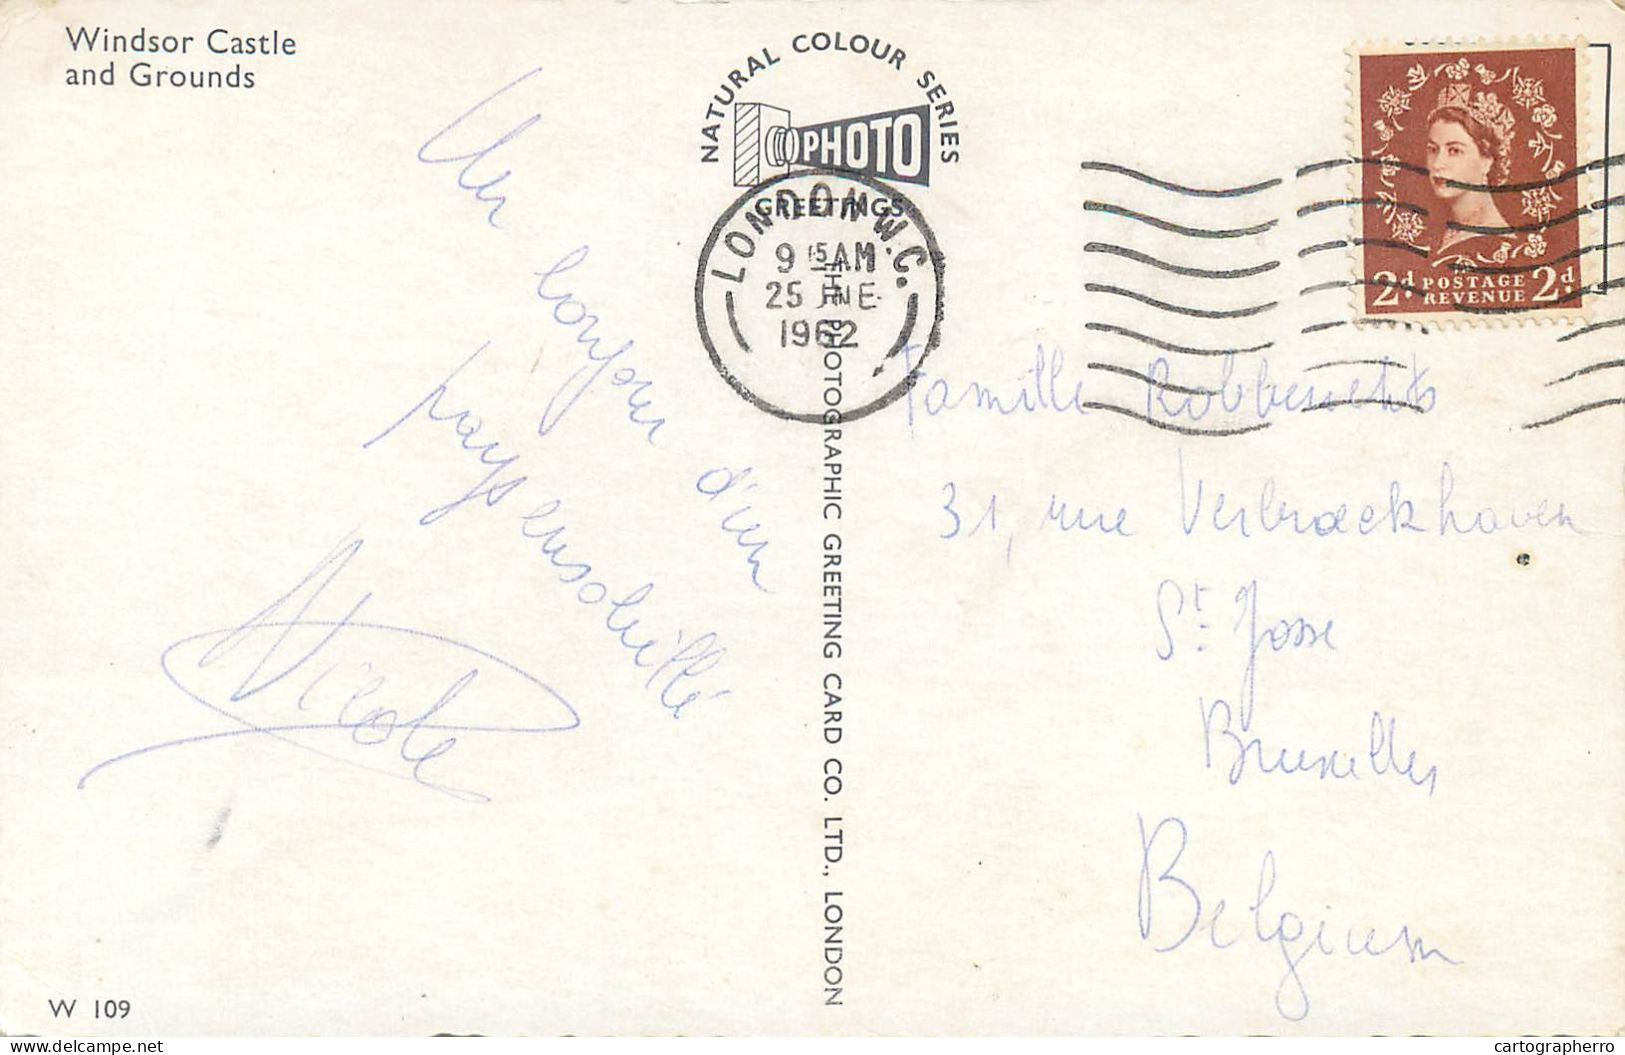 Windsor Castle
and Grounds
NATURAL COLOUR SERIES
PHOTO
GREETINGS
THE PHOTOGRAPHIC GREETING CARD CO. LTD., LONDON
LONDON W.C.
9 15 AM
25 JNE
1962
2d POSTAGE REVENUE 2d
Un bonjour d'un
pays ensoleillé
Nicole
Famille
31, rue Verbroekhaven
St Josse
Bruxelles
Belgium
W 109
cartographerro
delcampe.net